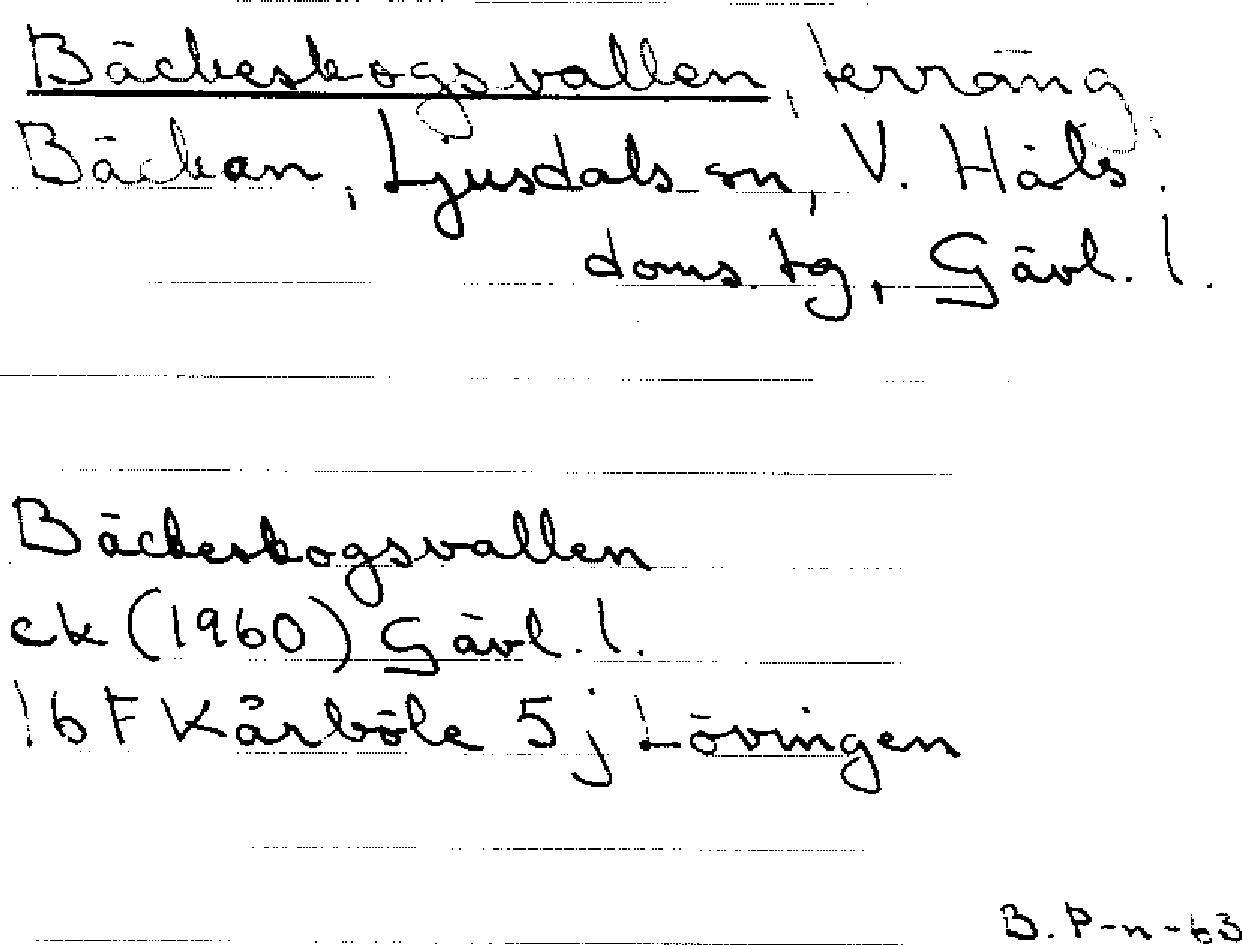 Bäckeskogsvallen, terräng,
Bäckan, Ljusdals sn, V. Häls.
doms. tg, Gävl. l.
Bäckeskogsvallen
ek (1960) Gävl. l.
16 F Kårböle 5 j Lövingen
B. P-n-63